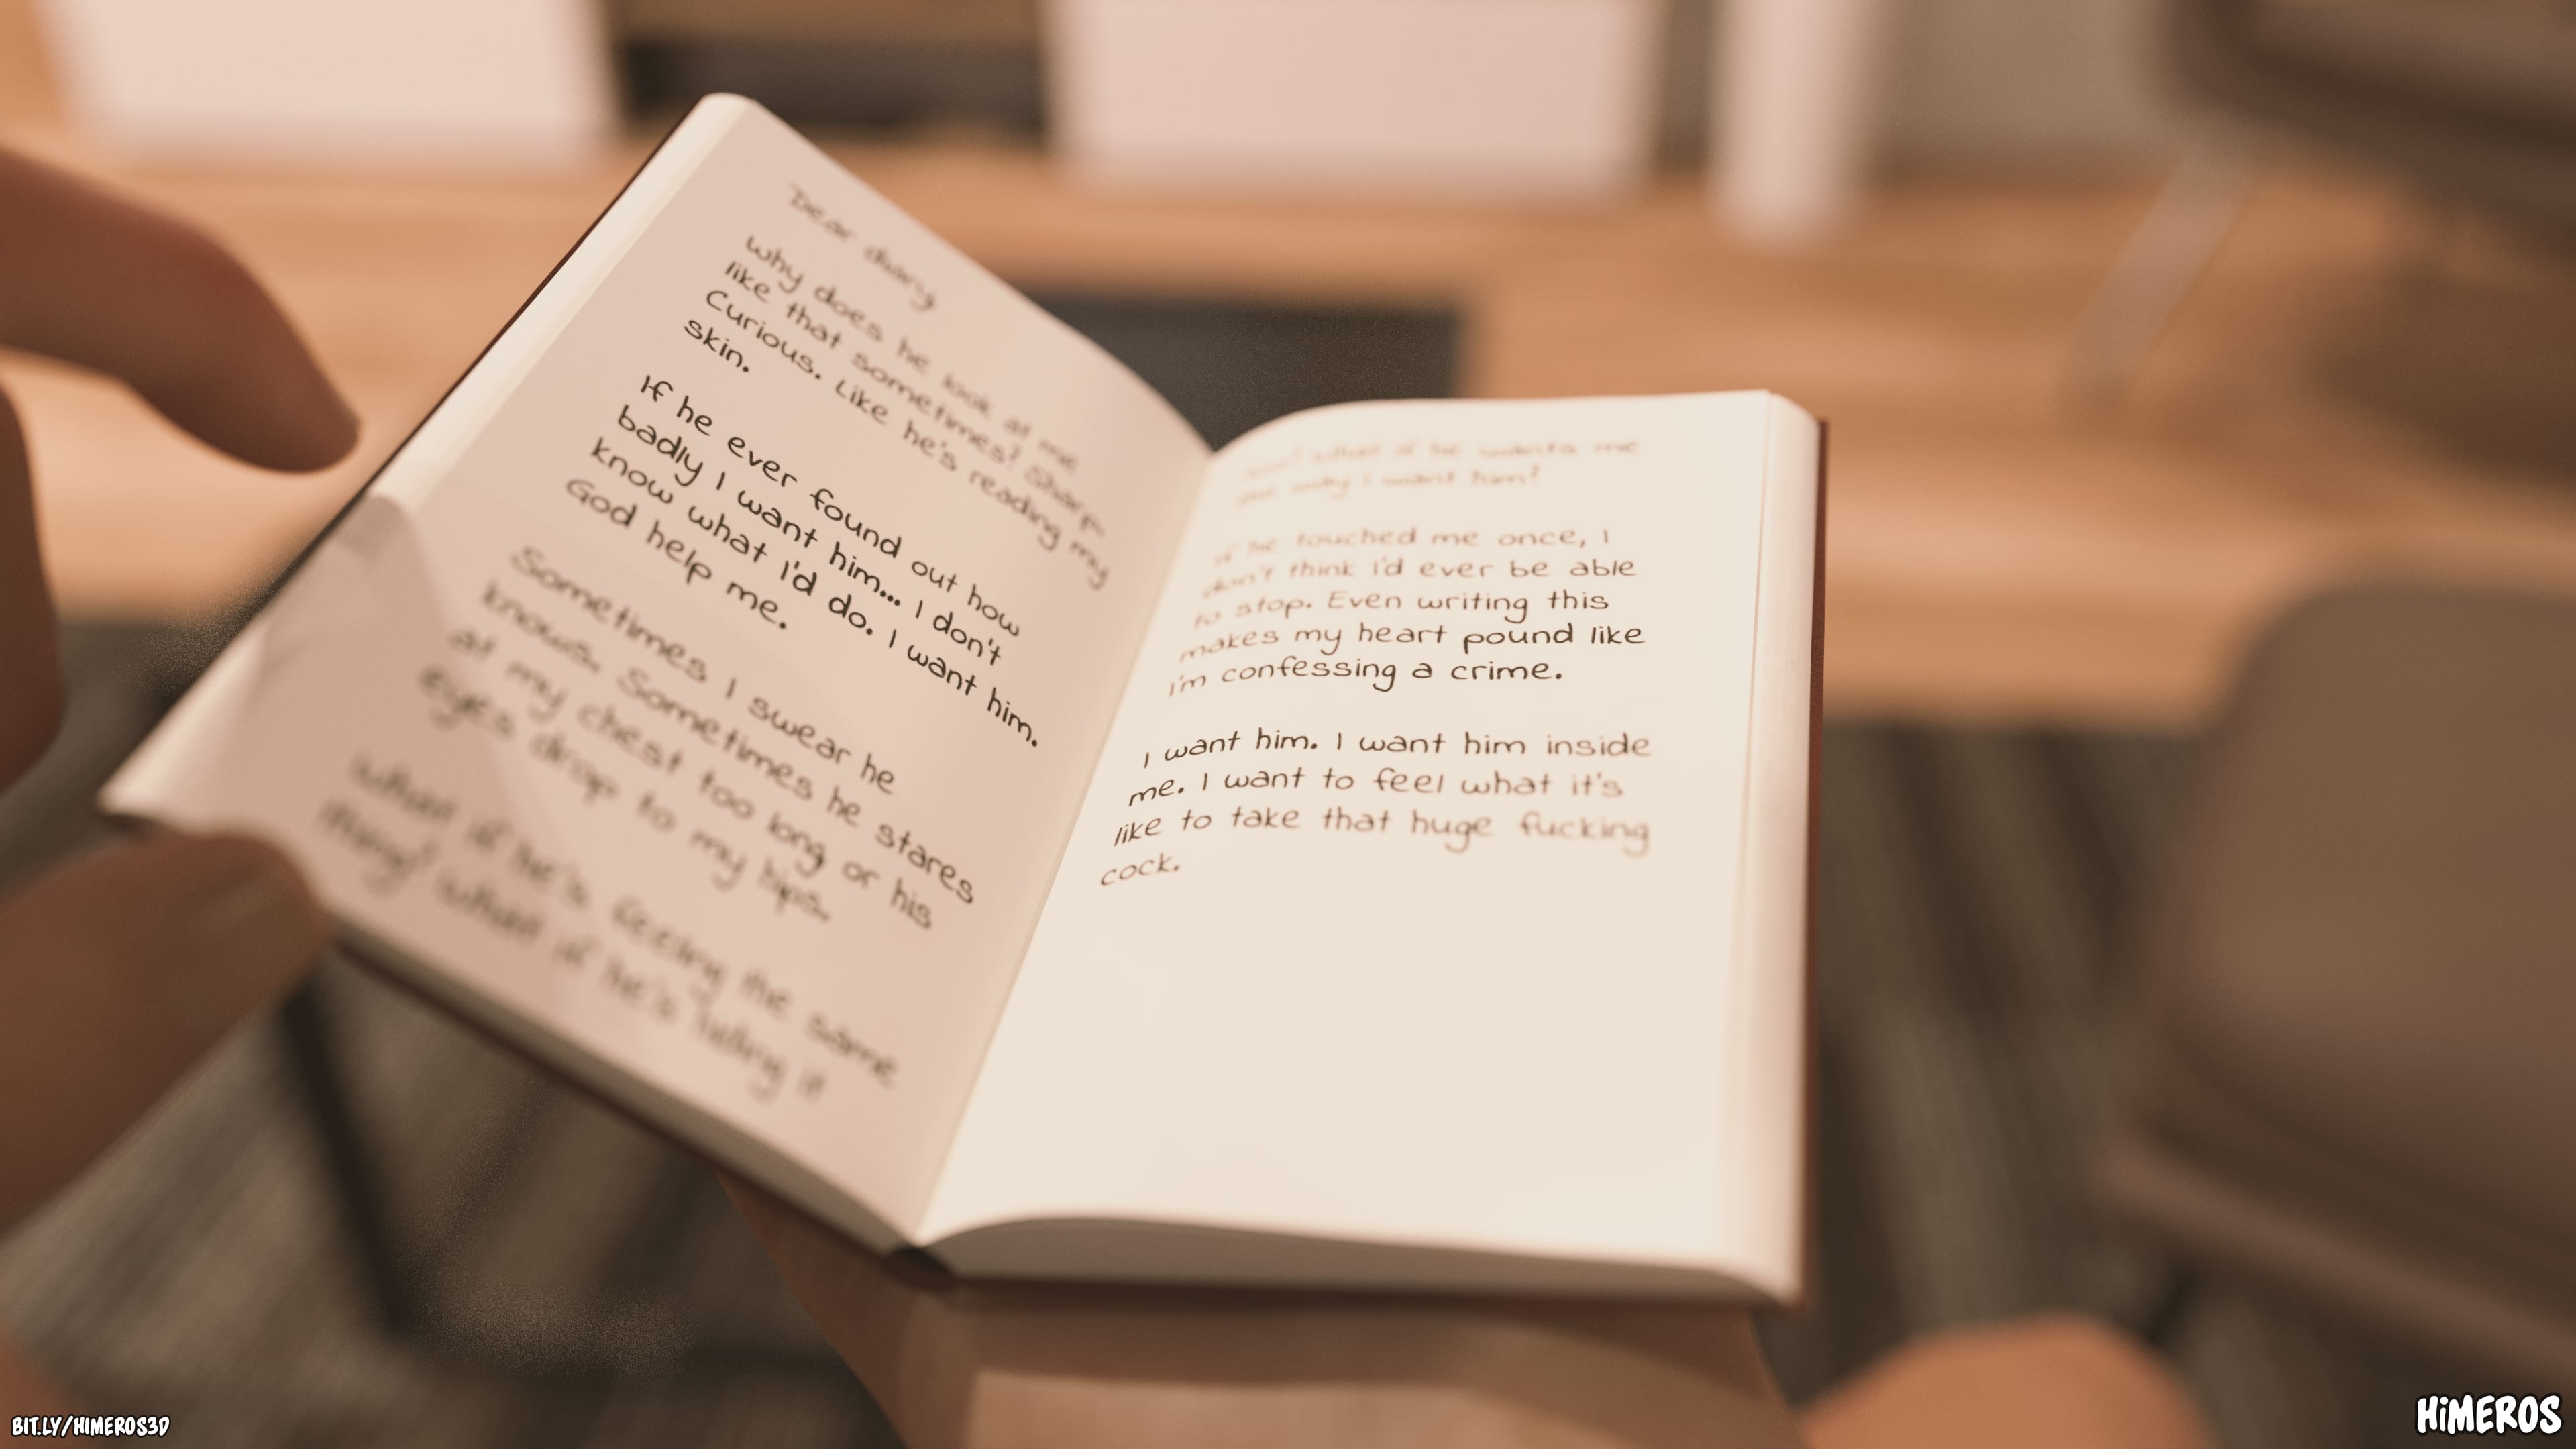 Dear diary
Why does he look at me
like that sometimes? Sharp.
Curious. Like he's reading my
skin.
If he ever found out how
badly I want him... I don't
know what I'd do. I want him.
God help me.
Sometimes I swear he
knows. Sometimes he stares
at my chest too long or his
eyes drop to my hips.
What if he's feeling the same
thing? What if he's hiding it
too? What if he wants me
the way I want him?
If he touched me once, I
don't think I'd ever be able
to stop. Even writing this
makes my heart pound like
I'm confessing a crime.
I want him. I want him inside
me. I want to feel what it's
like to take that huge fucking
cock.
BIT.LY/HIMEROS3D
HiMEROS